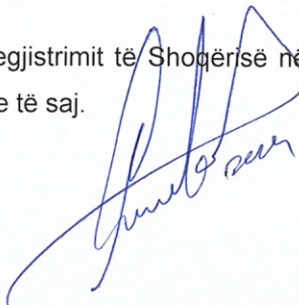 egjistrimit të Shoqërisë në
e të saj.